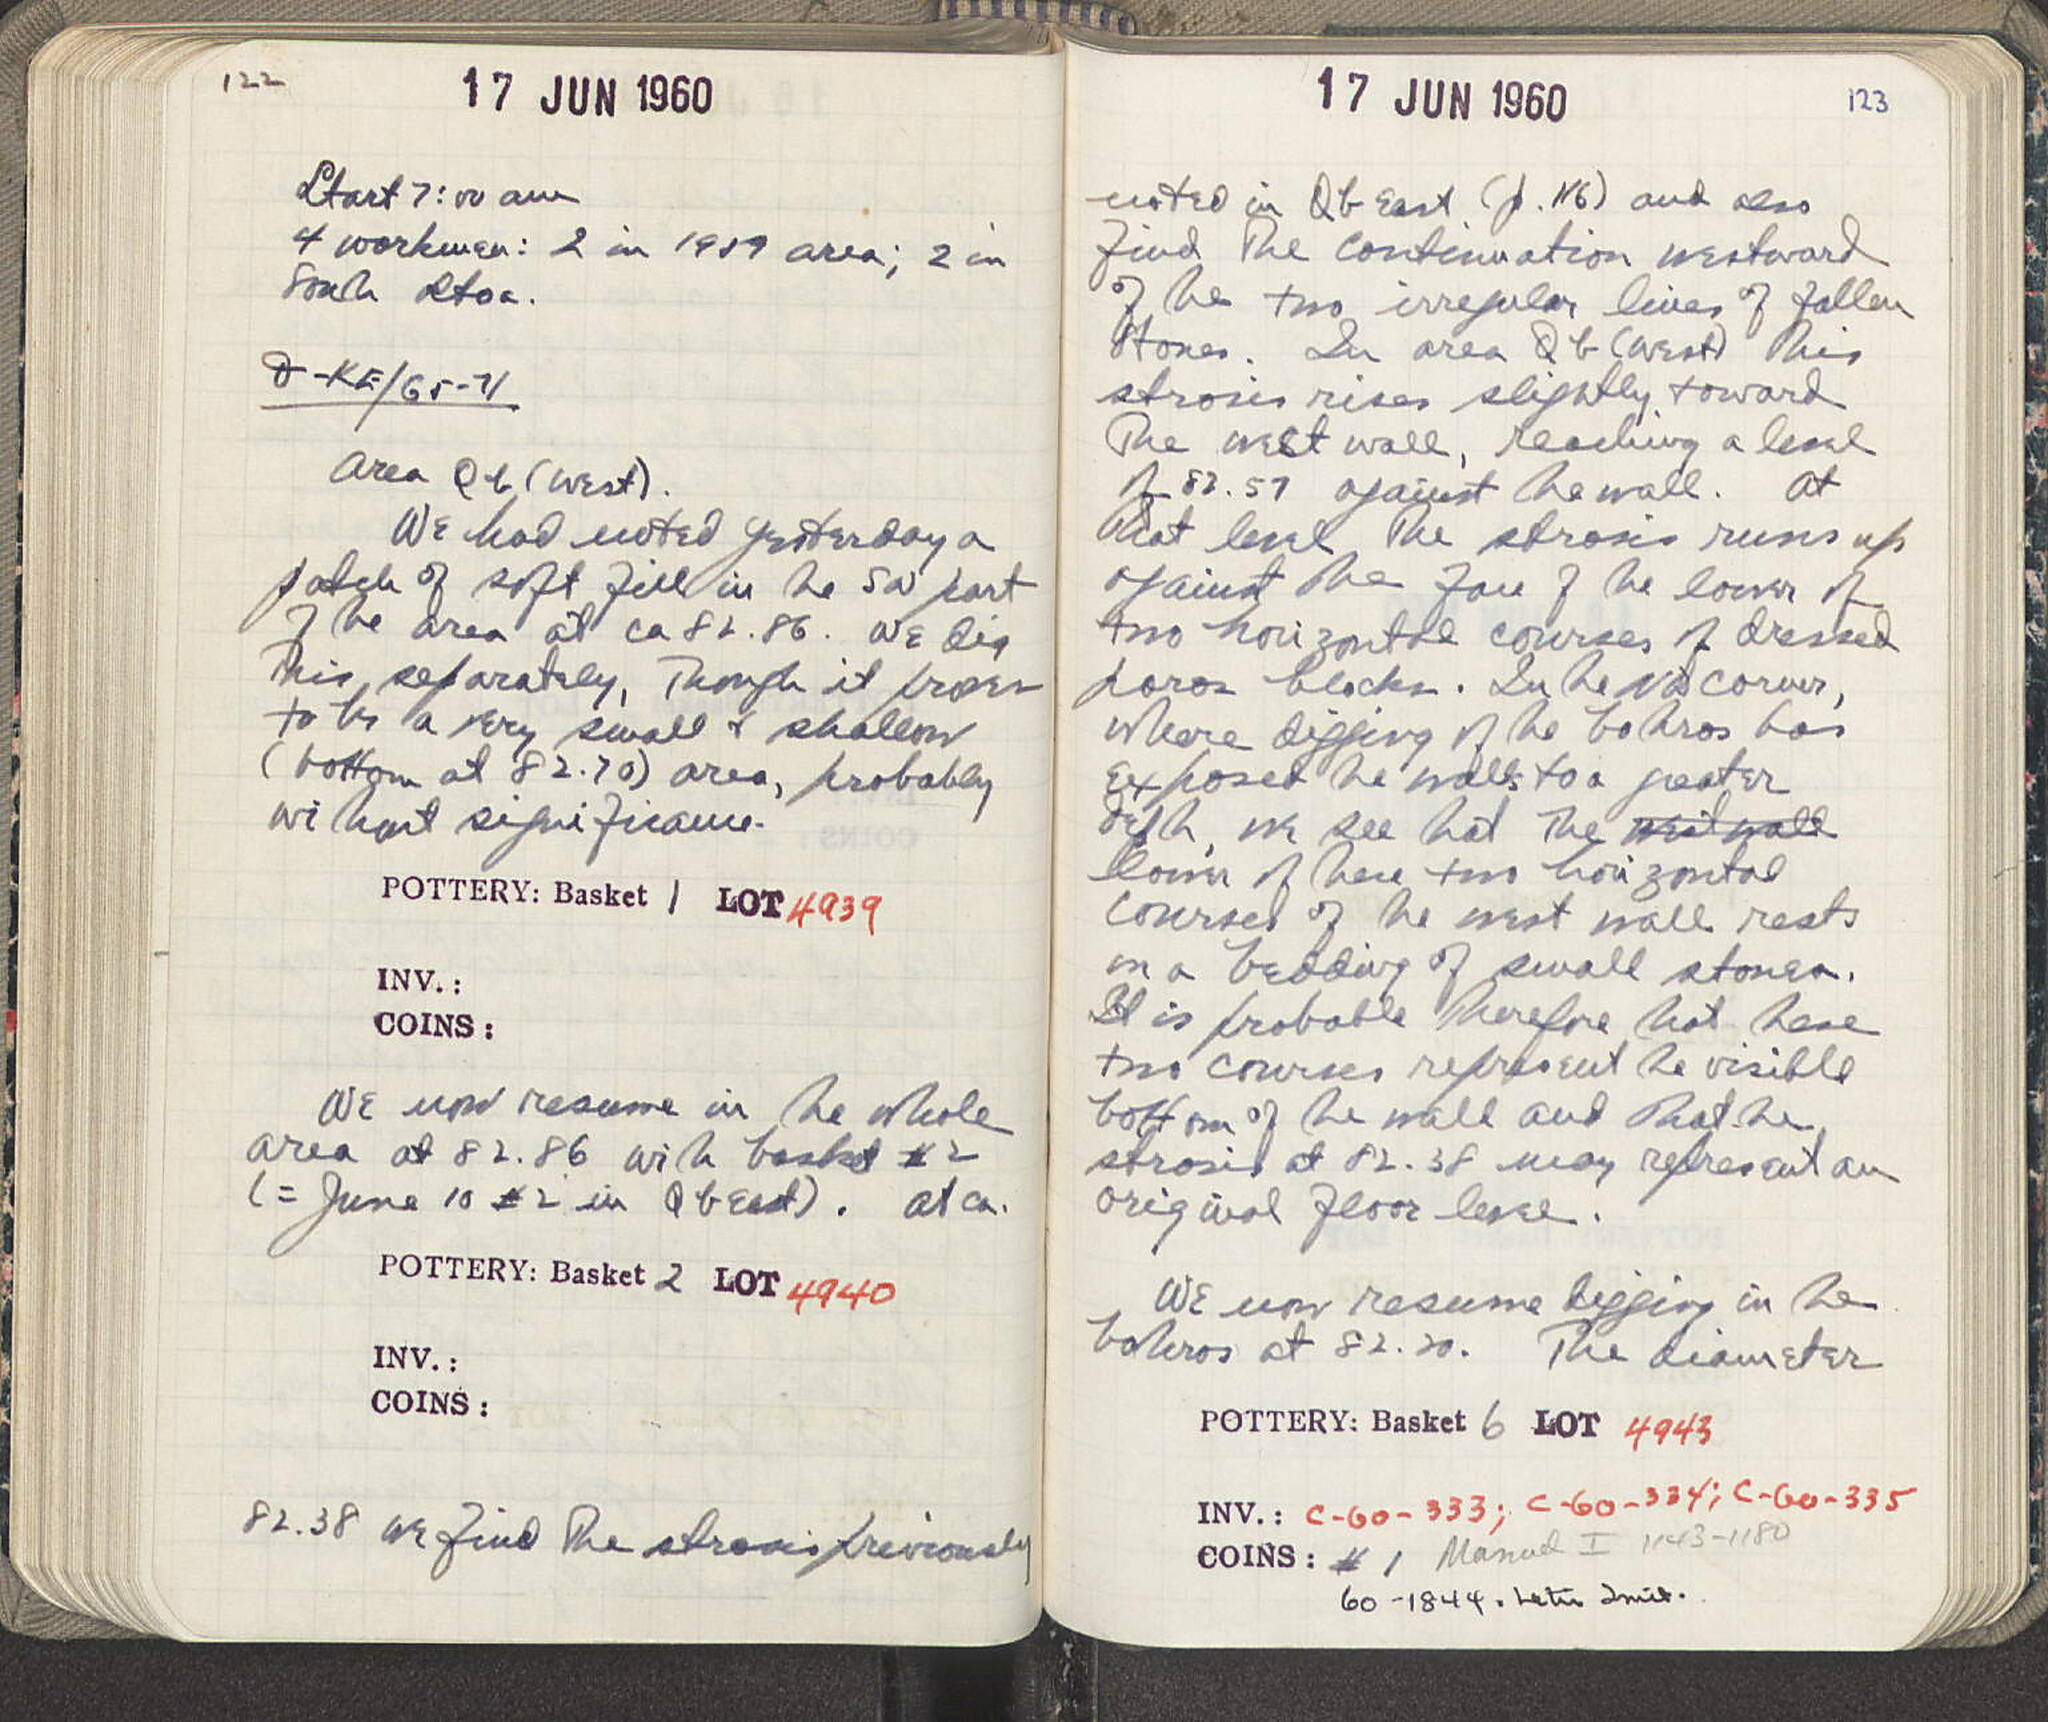 122
17 JUN 1960
Start 7:00 am
4 workmen: 2 in 1959 area; 2 in
South Stoa.
-KE/65-71
Area Qb (West).
We had noted yesterday a
patch of soft fill in the SW part
of the area at ca 82.86. We dig
this separately, though it proves
to be a very small & shallow
(bottom at 82.70) area, probably
without significance.
POTTERY: Basket 1 LOT 4939
INV.:
COINS:
We now resume in the whole
area at 82.86 with basket #2
(= June 10 #2 in Qb East). At ca.
POTTERY: Basket 2 LOT 4940
INV.:
COINS:
82.38 we find the strosis previously
17 JUN 1960
123
noted in Qb East (p. 116) and also
find the continuation westward
of the two irregular lines of fallen
stones. In area Qb (West) this
strosis rises slightly toward
the west wall, reaching a level
of 82.57 against the wall. At
that level the strosis runs up
against the face of the lower of
two horizontal courses of dressed
poros blocks. In the NW corner,
where digging of the bothros has
exposed the walls to a greater
depth, we see that the west wall
lower of these two horizontal
courses of the west wall rests
on a bedding of small stones.
It is probable therefore that these
two courses represent the visible
bottom of the wall and that the
strosis at 82.38 may represent an
original floor level.
We now resume digging in the
bothros at 82.20. The diameter
POTTERY: Basket 6 LOT 4943
INV.: C-60-333; C-60-334; C-60-335
COINS: #1 Manuel I 1143-1180
60-1844. Latin Imit.